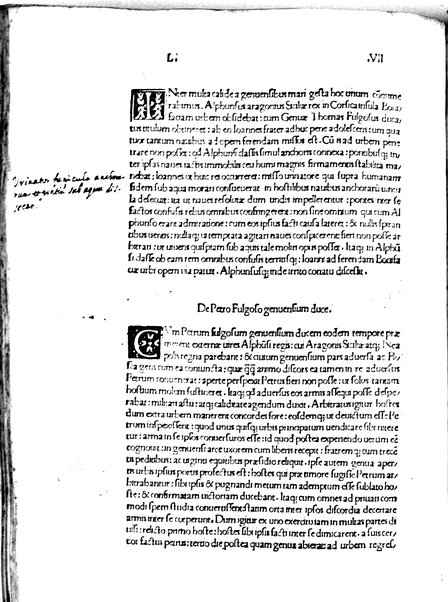 Li .VII
INter multa calide a genuensibus mari gesta hoc unum cōme
rabimus. Alphunsus aragonius Siciliæ rex in Corsica insula Boni
faciam urbem obsidebat: cum Genuæ Thomas Fulgosus ducatus
titulum obtineret: ab eo Ioannes frater adhuc pene adolescens: cum
tuor tantum nauibus ad opem ferendam missus est. Cū
trare non posset: qd Alphunsi classis simul anchoris connexa: pontibusq; in
ter ipsas naues iactis immobilis ceu humi magnis firmamentis stabilita
nebat: Ioannes ut huic rei occurreret: misso urinatore qui supra humanam
fidem sub aqua morari consueuerat in hostilibus nauibus anchorarū
la desecuit: ita ut naues resolutæ dum undis impellerentur:
factor confusis rebus omnibus confringerent: non sine omnium qui cum Al
phunso erant admiratione: cum eos ipsius facti causa lateret: & nullis
tibus uenis: nullaq; ut temptata agitari naues conspicerent fieri non posse
bitrari: ut uiuens quispiam sub aquis tale moliri opus posset. Itaq; in Alphū
si classe ob eam rem omnibus confusis territisq;: Ioanni ad ferendam Bonifa
ciæ urbi opem uia patuit. Alphunsusq; inde irrito conatu discessit.
Urinator
sub aqua
De Petro Fulgoso genuensium duce.
CVm Petrum fulgosum genuensium ducem eodem tempore præ
merent externæ uires Alphunsi regis: cui Aragonis Siciliæ atq; Nea
polis regna parebant: & ciuium genuensium pars aduersa ac
gens cum ea coniuncta: quæ animo discors ea tamen in re aduersus
Petrum conuenerat: aperte perspexit Petrus fieri non posse: ut solus tantam
hostium molem sustineret. Itaq; qd aduersus eos armis assequi posse despe
rabat: militari astu: atq; calliditate agendum duxit. Arbitratus igitur hostes
dum extra urbem manerent concordes fore: eosdemq; ut deuictum esse Pe
trum inspexissent: quod unus quisq; urbis principatum uendicare sibi
tur: arma in se ipsos conuersuros esse: id quod postea experiendo uerum eē
cognouit: in genuensi arce uxorem cum liberis recepit: fratremq; cum
tis peditibus: ac uiginti equitibus præsidio reliquit. ipse autem genua aper
tis urbis ipsius portis profectus est: hostes qui præ timore fugisse Petrum
bitrabantur: sibi ipsis & pugnandi metum iam ademptum esse sublato ho
ste: & confirmatam uictoriam ducebant. Itaq; cum omnes ad priuati com
modi spem studia conuertissent: statim orta inter ipsos discordia decertare
armis inter se cœperunt. Dum igitur ex uno exercitu iam in multas partes
uisi: relicto primo hoste: hostes sibi ipsis facti inter se dimicarent. a suis cer
tior factus petrus: tertio die postea quam genua abierat: ad urbem regres